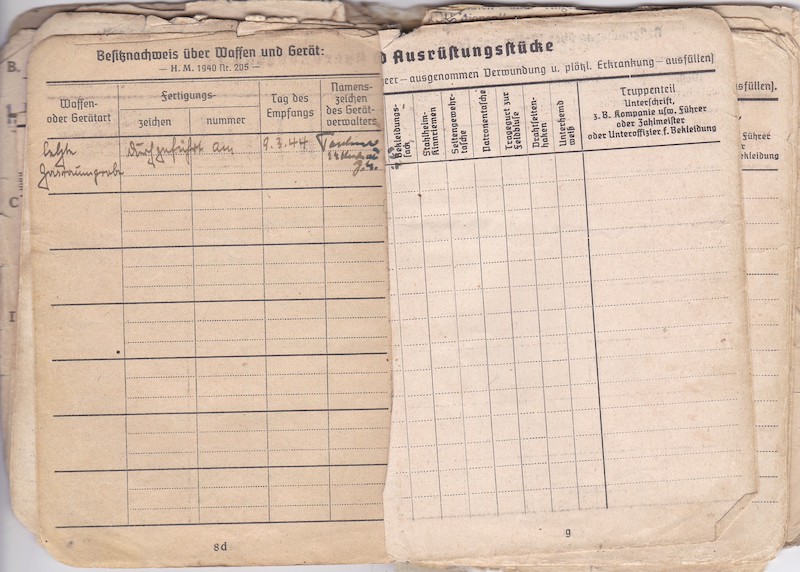 Besitznachweis über Waffen und Gerät:
— H. M. 1940 Nr. 205 —
Waffen-
oder Gerätart
Fertigungs-
zeichen
nummer
Tag des
Empfangs
Namens-
zeichen
des Gerät-
verwalters
letzte durchgeführt am 9.3.44
Gasraumprobe
8d
d Ausrüstungsstücke
eer — ausgenommen Verwundung u. plötzl. Erkrankung — ausfüllen)
Bekleidungs-
sack
Stahlhelm-
Kinnriemen
Seitengewehr-
tasche
Patronentasche
Tragegurt zur
Feldbluse
Drahtseiten-
haken
Unterhemd
weiß
Truppenteil
Unterschrift,
z. B. Kompanie usw. Führer
oder Zahlmeister
oder Unteroffizier f. Bekleidung
g
sfüllen).
Führer
er
Bekleidung
B.
C
I